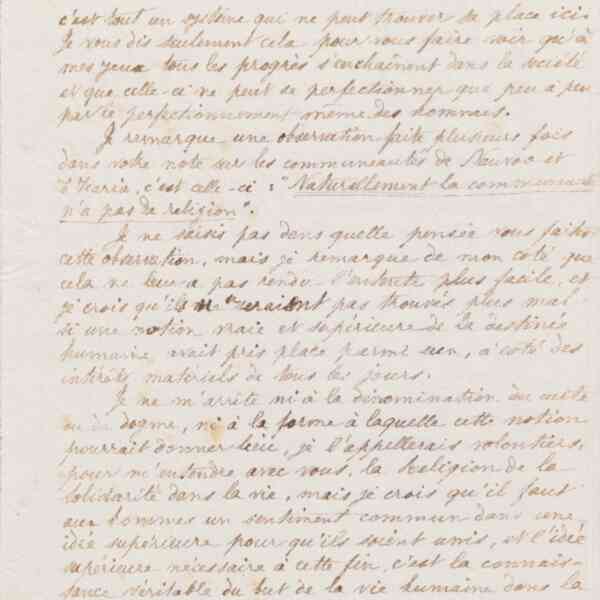 c'est tout un système qui ne peut trouver sa place ici.
Je vous dis seulement cela pour vous faire voir qu'à
mes yeux tous les progrès s'enchaînent dans la société
et que celle-ci ne peut se perfectionner que peu à peu
par le perfectionnement même des hommes.
Je remarque une observation faite plusieurs fois
dans votre note sur les communeautés de Nauvoo et
d'Icaria, c'est celle-ci : "Naturellement la communauté
n'a pas de religion".
Je ne saisis pas dans quelle pensée vous faites
cette observation, mais je remarque de mon coté que
cela ne leur a pas rendu l'entente plus facile, et
je crois qu'ils ne se seraient pas trouvés plus mal
si une notion vraie et supérieure de la destinée
humaine, avait pris place parmi eux, à coté des
intérêts matériels de tous les jours.
Je ne m'arrête ni à la dénomination du culte
ou du dogme, ni à la forme à laquelle cette notion
pourrait donner lieu, je l'appellerais volontiers,
pour m'entendre avec vous, la Religion de la
Solidarité dans la vie, mais je crois qu'il faut
aux hommes un sentiment commun dans une
idée supérieure pour qu'ils soient unis, et l'idée
supérieure nécessaire à cette fin, c'est la connais-
sance véritable du but de la vie humaine dans la